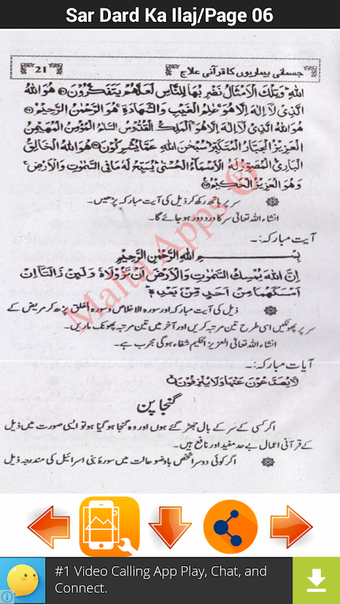 Sar Dard Ka Ilaj/Page 06
جسمانی بیماریوں کا قرآنی علاج
21
اللهِ وَتِلْكَ الْاَمْثَالُ نَضْرِبُهَا لِلنَّاسِ لَعَلَّهُمْ يَتَفَكَّرُوْنَ هُوَ اللهُ
الَّذِيْ لَا اِلٰهَ اِلَّا هُوَ عٰلِمُ الْغَيْبِ وَالشَّهَادَةِ هُوَ الرَّحْمٰنُ الرَّحِيْمُ
هُوَ اللهُ الَّذِيْ لَا اِلٰهَ اِلَّا هُوَ اَلْمَلِكُ الْقُدُّوْسُ السَّلٰمُ الْمُؤْمِنُ الْمُهَيْمِنُ
الْعَزِيْزُ الْجَبَّارُ الْمُتَكَبِّرُ سُبْحٰنَ اللهِ عَمَّا يُشْرِكُوْنَ هُوَ اللهُ الْخَالِقُ
الْبَارِئُ الْمُصَوِّرُ لَهُ الْاَسْمَآءُ الْحُسْنٰى يُسَبِّحُ لَهٗ مَا فِي السَّمٰوٰتِ وَالْاَرْضِ
وَهُوَ الْعَزِيْزُ الْحَكِيْمُ
سر پر ہاتھ رکھ کر ذیل کی آیت مبارکہ پڑھیں۔
انشاء اللہ تعالیٰ سر کا درد دور ہو جائے گا۔
آیت مبارکہ:۔
بِسْمِ اللهِ الرَّحْمٰنِ الرَّحِيْمِ
اِنَّ اللهَ يُمْسِكُ السَّمٰوٰتِ وَالْاَرْضَ اَنْ تَزُوْلَا وَلَئِنْ زَالَتَا اِنْ
اَمْسَكَهُمَا مِنْ اَحَدٍ مِّنْ بَعْدِهٖ
ذیل کی آیت مبارکہ اور سورہ الاخلاص و سورہ الفلق پڑھ کر مریض کے
سر پر پھونکیں اسی طرح تین مرتبہ کریں اور آخر میں تین مرتبہ پھونک ماریں۔
انشاء اللہ تعالیٰ العزیز الحکیم شفاء ہوگی مجرب ہے۔
آیات مبارکہ:۔
لَا يُصَدَّعُوْنَ عَنْهَا وَلَا يُنْزِفُوْنَ
گنجا پن
اگر کسی کے سر کے بال جھڑ گئے ہوں اور وہ گنجا ہو گیا ہو تو ایسی صورت میں ذیل
کے قرآنی اعمال بے حد مفید اور نافع ہیں۔
اگر کوئی دوسرا شخص باوضو حالت میں سورۃ بنی اسرائیل کی مندرجہ ذیل
Malta Apps
#1 Video Calling App Play, Chat, and
Connect.